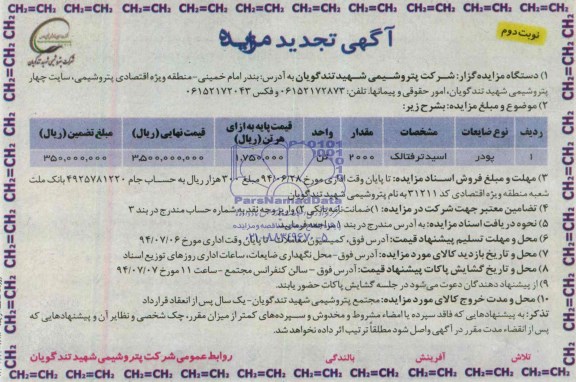 CH₂=CH₂ CH₂=CH₂ CH₂=CH₂ CH₂=CH₂ CH₂=CH₂ CH₂=CH₂ CH₂=CH₂ CH₂=CH₂
نوبت دوم
آگهی تجدید مزایده
شرکت پتروشیمی شهید تندگویان
۱) دستگاه مزایده گزار: شرکت پتروشیمی شهید تندگویان به آدرس: بندر امام خمینی-منطقه ویژه اقتصادی پتروشیمی، سایت چهار
پتروشیمی شهید تندگویان، امور حقوقی و پیمانها. تلفن: ۰۶۱۵۲۱۷۲۸۷۳ و فکس ۰۶۱۵۲۱۷۲۰۴۳
۲) موضوع و مبلغ مزایده: بشرح زیر:
ردیف نوع ضایعات مشخصات مقدار واحد قیمت پایه به ازای هر تن (ریال) قیمت نهایی (ریال) مبلغ تضمین (ریال)
۱ پودر اسید ترفتالیک ۲۰۰۰ تن ۱,۷۵۰,۰۰۰ ۳۵۰۰,۰۰۰,۰۰۰ ۳۵۰,۰۰۰,۰۰۰
۳) مهلت و مبلغ فروش اسناد مزایده: تا پایان وقت اداری مورخ ۹۴/۰۶/۲۸ مبلغ ۳۰۰ هزار ریال به حساب جام ۴۹۲۵۷۸۱۲۲۰ بانک ملت
شعبه منطقه ویژه اقتصادی کد ۳۱۲۱۱ به نام پتروشیمی شهید تندگویان
۴) تضامین معتبر جهت شرکت در مزایده: ۱) ضمانت نامه بانکی ۲) واریز وجه نقد به شماره حساب مندرج در بند ۳
۵) نحوه دریافت اسناد مزایده: به آدرس مندرج در بند ۱ مراجعه فرمایید
۶) محل و مهلت تسلیم پیشنهاد قیمت: آدرس فوق، کمیسیون معاملات تا پایان وقت اداری مورخ ۹۴/۰۷/۰۶
۷) محل و تاریخ بازدید کالای مورد مزایده: آدرس فوق-محل نگهداری ضایعات، ساعات اداری روزهای توزیع اسناد
۸) محل و تاریخ گشایش پاکات پیشنهاد قیمت: آدرس فوق - سالن کنفرانس مجتمع - ساعت ۱۱ مورخ ۹۴/۰۷/۰۷
۹) از پیشنهاد دهندگان دعوت می شود در جلسه گشایش پاکات حضور یابند.
۱۰) محل و مدت خروج کالای مورد مزایده: مجتمع پتروشیمی شهید تندگویان-یک سال پس از انعقاد قرارداد
تذکر: به پیشنهادهایی که فاقد سپرده یا امضاء مشروط و مخدوش و سپرده های کمتر از میزان مقرر، چک شخصی و نظایر آن و پیشنهادهایی که
پس از انقضاء مدت مقرر در آگهی واصل شود مطلقاً ترتیب اثر داده نخواهد شد.
تلاش آفرینش بالندگی روابط عمومی شرکت پتروشیمی شهید تندگویان
CH₂=CH₂ CH₂=CH₂ CH₂=CH₂ CH₂=CH₂ CH₂=CH₂ CH₂=CH₂ CH₂=CH₂ CH₂=CH₂
ParsNamadData